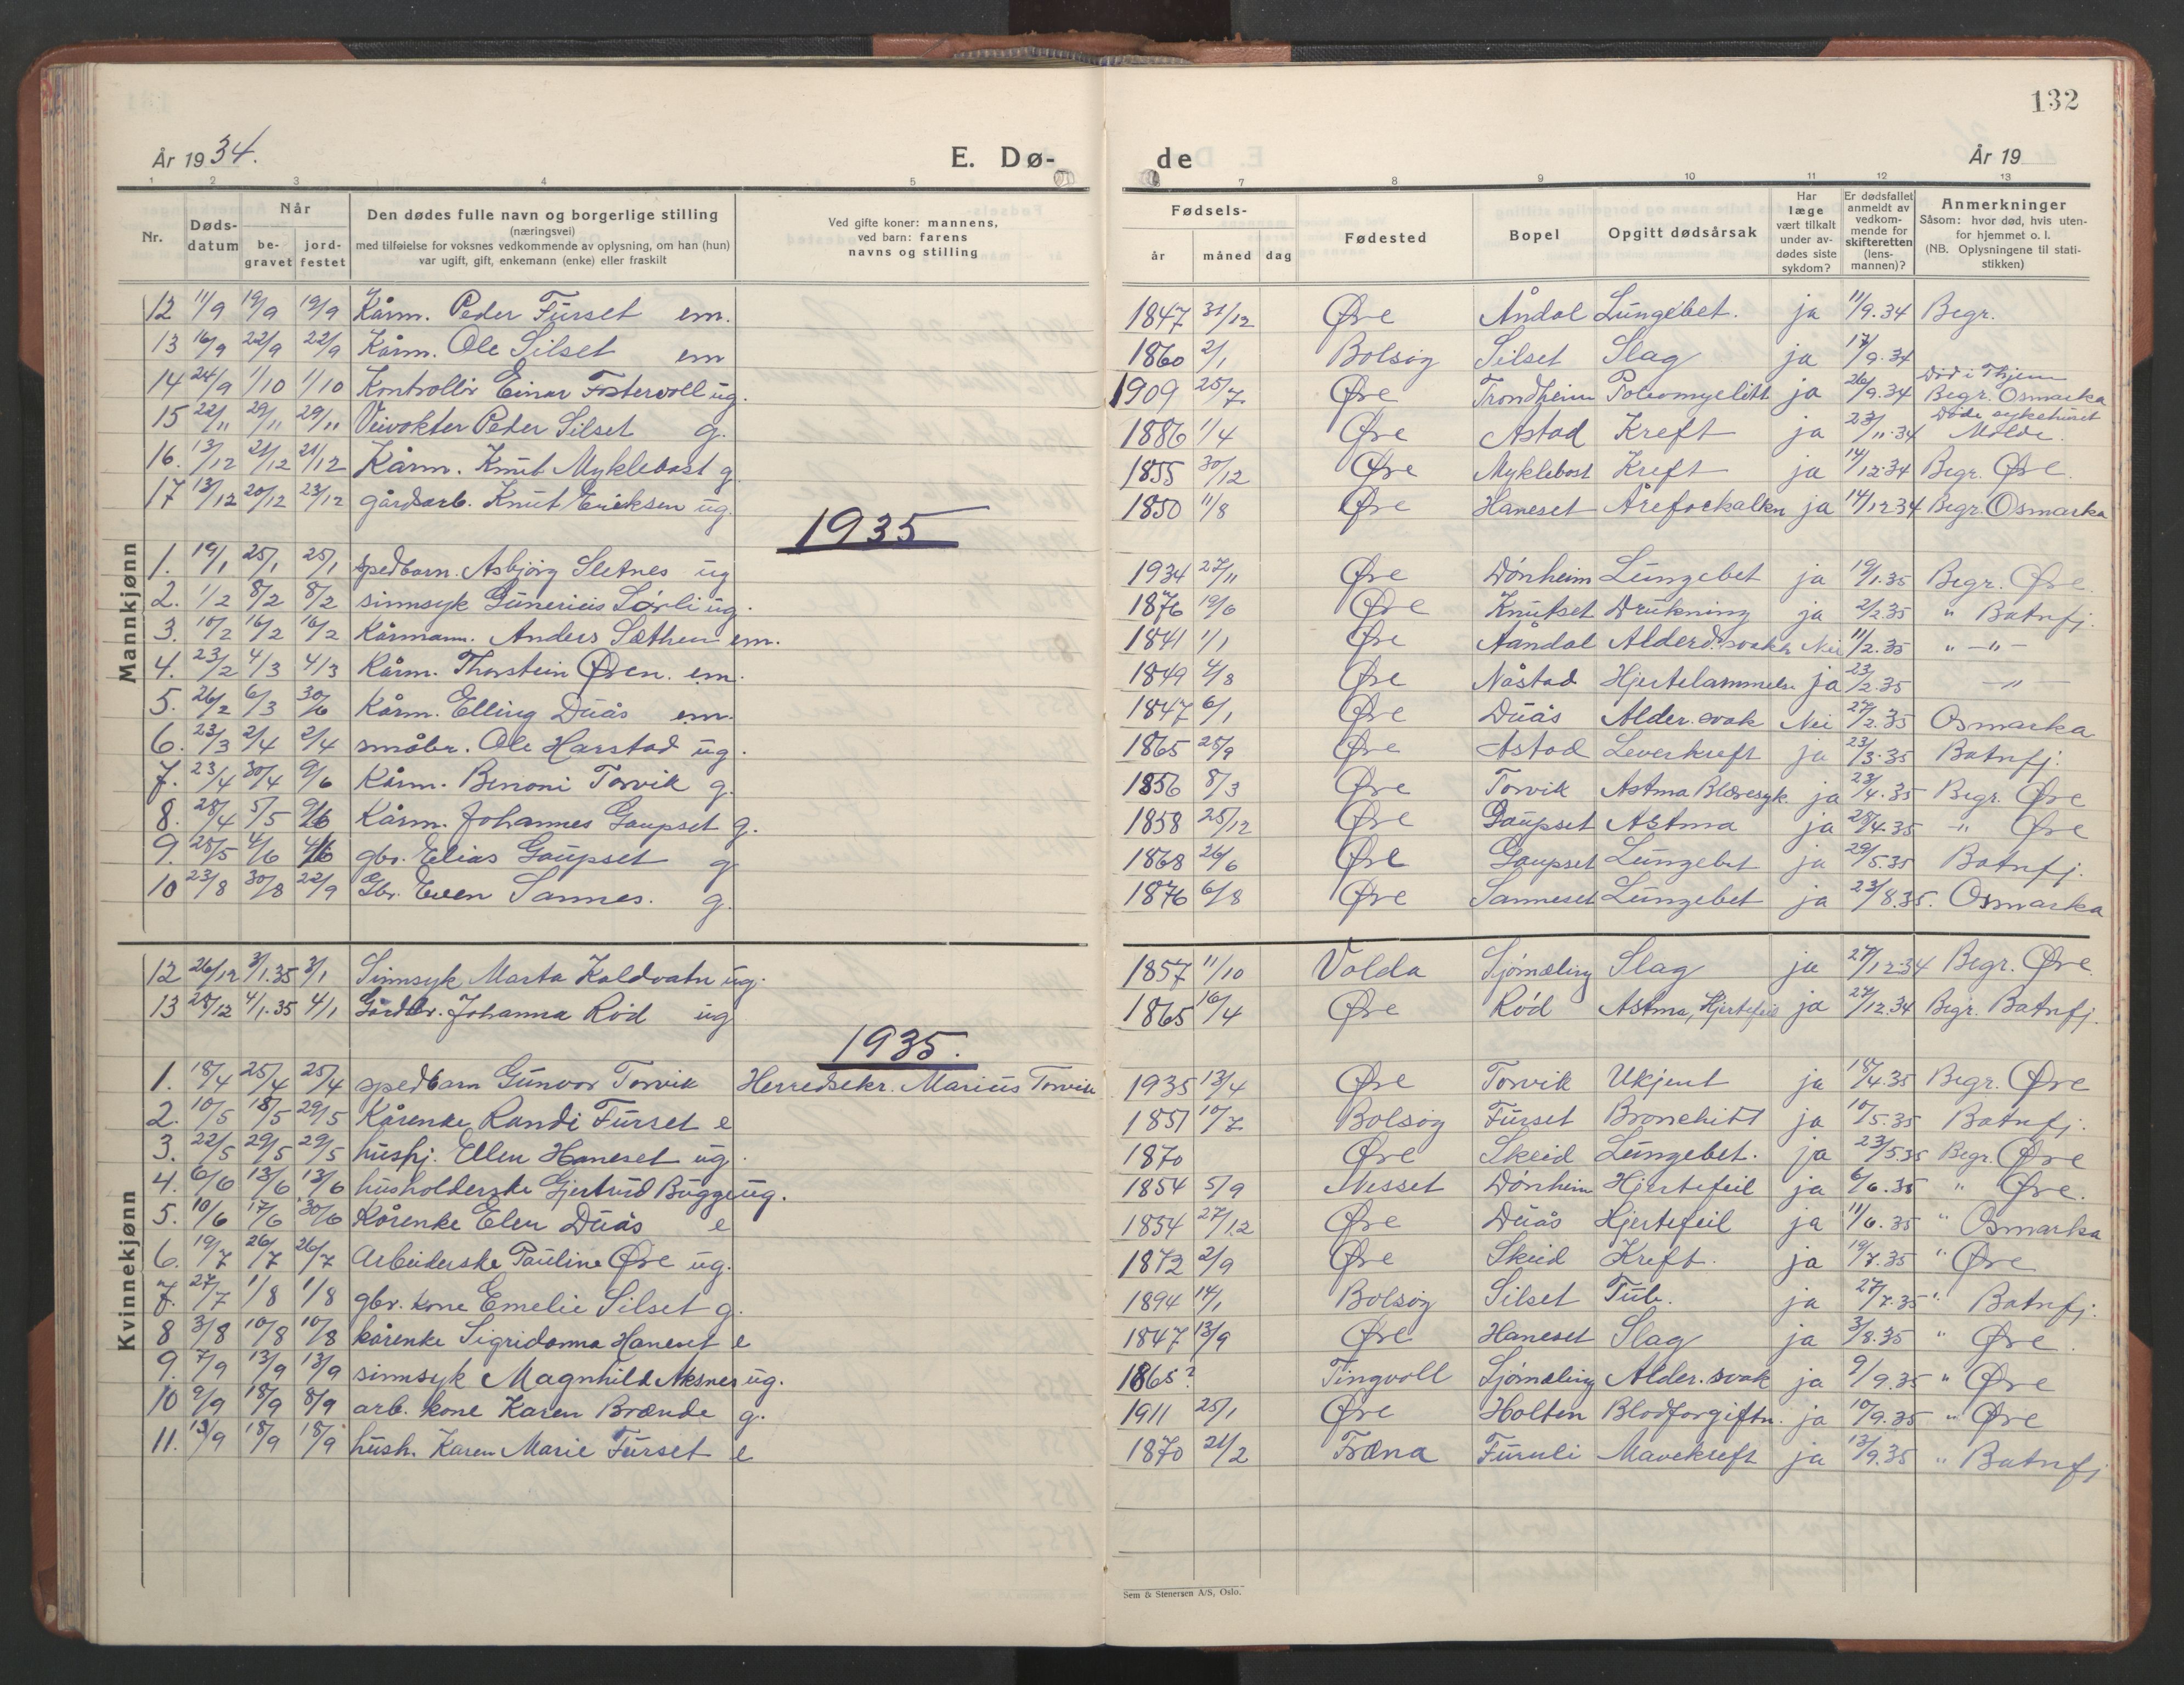 132
År 1934.
E. Dø-
de
År 19
1 2 3 4 5
6 7 8 9 10 11 12 13
Nr.
Døds-
datum
Når
be-
gravet
jord-
festet
Den dødes fulle navn og borgerlige stilling
(næringsvei)
med tilføielse for voksnes vedkommende av oplysning, om han (hun)
var ugift, gift, enkemann (enke) eller fraskilt
Ved gifte koner: mannens,
ved barn: farens
navns og stilling
Fødsels-
år måned dag
Fødested
Bopel
Opgitt dødsårsak
Har
læge
vært tilkalt
under av-
dødes siste
sykdom?
Er dødsfallet
anmeldt av
vedkom-
mende for
skifteretten
(lens-
mannen)?
Anmerkninger
Såsom: hvor død, hvis uten-
for hjemmet o. l.
(NB. Oplysningene til stati-
stikken)
Mannkjønn
12 11/9 19/9 19/9 Kårm. Peder Furset em. 1847 31/12 Øre Åndal Lungebet. ja 11/9.34 Begr.
13 16/9 22/9 22/9 Kårm. Ole Silset em 1860 2/1 Bolsøy Silset Slag ja 17/9.34
14 24/9 1/10 1/10 Kontrollør Einar Fostervoll ug. 1909 25/7 Øre Trondheim Poleomyelitt ja 26/9.34 Død i Thjem Begr. Osmarka
15 22/11 29/11 29/11 Veivokter Peder Silset g. 1886 1/4 Øre Astad Kreft ja 23/11.34 Døde sykehuset Molde.
16. 13/12 21/12 21/12 Kårm. Knut Myklebost g 1855 30/12 Øre Myklebost Kreft ja 14/12.34 Begr. Øre
17 13/12 20/12 23/12 gårdsarb. Knut Eriksen ug. 1850 11/8 Øre Haneset Årefockalkn ja 14/12 34 Begr. Osmarka
1935
1. 19/1 25/1 25/1 spedbarn. Asbjørg Sletnes ug 1934 27/11 Øre Dønheim Lungebet ja 19/1.35 Begr. Øre.
2. 1/2 8/2 8/2 sinnsyk Gunerius Sørli ug. 1876 19/6 Øre Knutset Drukning ja 2/2.35 " Batnfj.
3. 10/2 16/2 16/2 Kårmann. Anders Sæther em. 1841 1/1 Øre Aandal Alderd.svakh Nei 11/2.35 " — " —
4. 23/2 4/3 4/3 Kårm. Thorstein Øren. em. 1849 4/8 Øre Nåstad Hjertelammelse ja 23/2.35 — " —
5. 26/2 6/3 30/6 Kårm. Elling Duås em. 1847 6/1 Øre Duås Alder.svak Nei 27/2.35 Osmarka
6. 23/3 2/4 2/4 småbr. Ole Harstad ug. 1865 25/9 Øre Astad Leverkreft ja 23/3.35 Batnfj.
7. 23/4 30/4 9/6 Kårm. Benoni Torvik g. 1856 8/3 Øre Torvik Astma Blæresyk. ja 23/4.35 Begr. Øre
8. 28/4 5/5 9/6 Kårm. Johannes Gaupset g. 1858 25/12 Øre Gaupset Astma ja 28/4.35 " Øre
9. 28/5 4/6 4/6 gbr. Elias Gaupset g 1868 26/6 Øre Gaupset Lungebet ja 29/5.35 Batnfj.
10 23/8 30/8 22/9 Gbr. Even Sannes. g. 1876 6/8 Øre Sanneset Lungebet ja 23/8.35. Osmarka
Kvinnekjønn
12 26/12 3/1.35 3/1 Sinnsyk Marta Koldvatn ug. 1857 11/10 Volda Sjømæling Slag ja 27/12 34 Begr. Øre.
13 28/12 4/1.35 4/1 Gårdbr. Johanna Rød ug 1865 16/4 Øre Rød Astma, Hjertefeil ja 27/12.34 Begr. Batnfj.
1935.
1. 18/4 25/4 25/4 spedbarn Gunvor Torvik Herredsekr. Marius Torvik 1935 13/4 Øre Torvik Ukjent ja 18/4.35 Begr. Øre
2. 10/5 18/5 29/5 Kårenke Randi Furset e 1851 10/7 Bolsøy Furset Bronchitt ja 10/5.35 Batnfj.
3. 22/5 29/5 29/5 hushj. Ellen Haneset ug. 1870 Øre Skeid Lungebet. ja 23/5.35 Begr. Øre
4. 6/6 13/6 13/6 husholderske Gjertrud Bugge ug. 1854 5/9 Nesset Dønheim Hjertefeil ja 6/6.35 " Øre.
5. 10/6 17/6 30/6 Kårenke Elen Duås e 1854 27/12 Øre Duås Hjertefeil ja 11/6.35 " Osmarka
6. 19/7 26/7 26/7 Arbeiderske Pauline Øre ug. 1872 2/9 Øre Skeid Kreft. ja 19/7.35 " Øre
7. 27/7 1/8 1/8 gbr. kone Emelie Silset g. 1894 14/1 Bolsøy Silset Tub. ja 27/7.35 " Batnfj.
8 3/8 10/8 10/8 kårenke Sigridanna Haneset e 1847 13/9 Øre Haneset Slag ja 3/8.35 " Øre.
9. 7/9 13/9 13/9 sinnsyk Magnhild Aksnes ug. 1865? Tingvoll Sjømæling Alder.svak ja 9/9.35 " Øre
10 9/9 18/9 8/9 arb. kone Karen Brænde g. 1911 25/1 Øre Holten Blodforgiftn. ja 10/9.35 " Øre
11. 13/9 18/9 18/9 hush. Karen Marie Furset e 1870 21/2 Træna Furuli Mavekreft ja 13/9.35 " Batnfj
Sem & Stenersen A/S, Oslo.